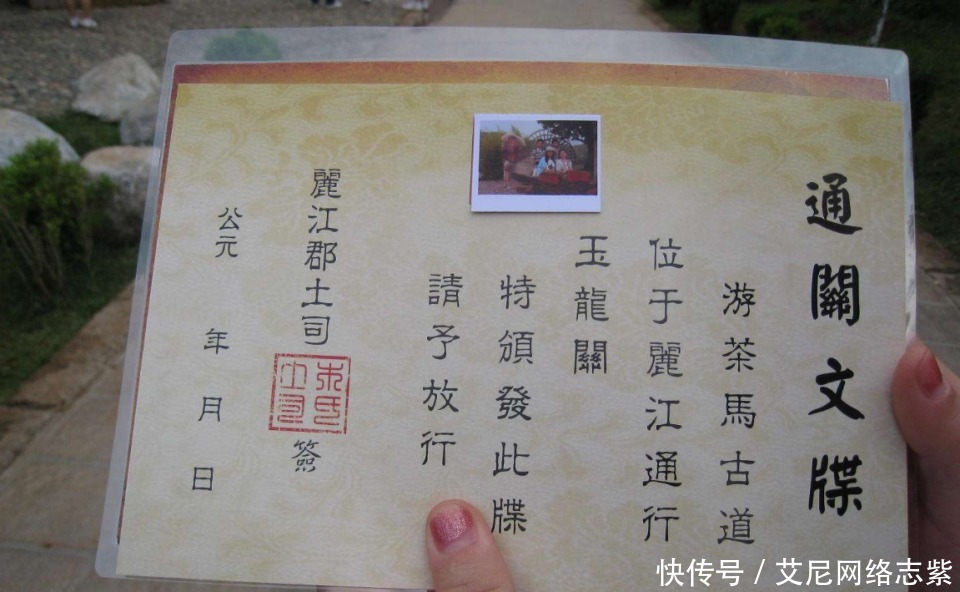 通關文牒
游茶馬古道
位于麗江通行
玉龍關
特頒發此牒
請予放行
麗江郡土司
木氏土司
簽
公元 年 月 日
快传号 / 艾尼网络志紫